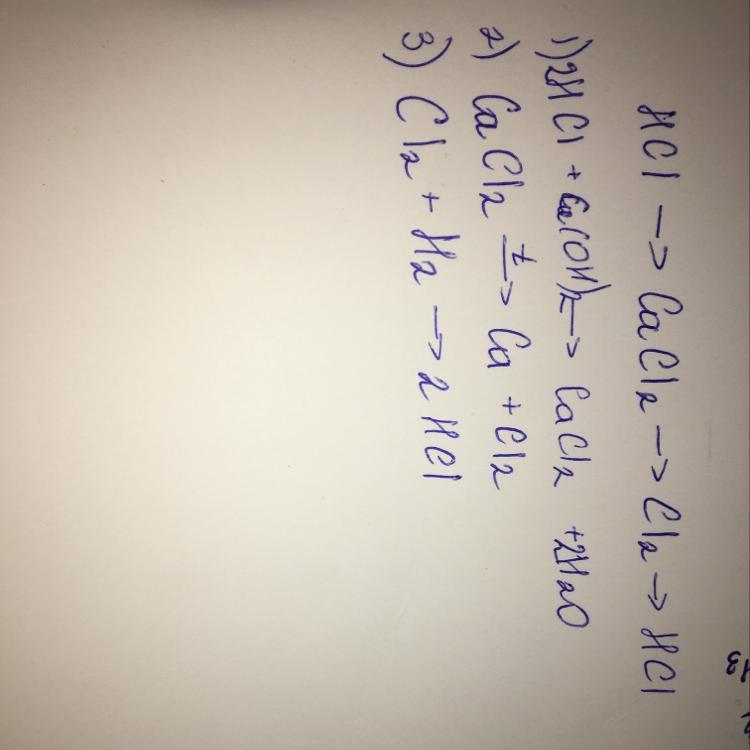 HCl → CaCl2 → Cl2 → HCl
1) 2HCl + Ca(OH)2 → CaCl2 + 2H2O
2) CaCl2 t→ Ca + Cl2
3) Cl2 + H2 → 2HCl